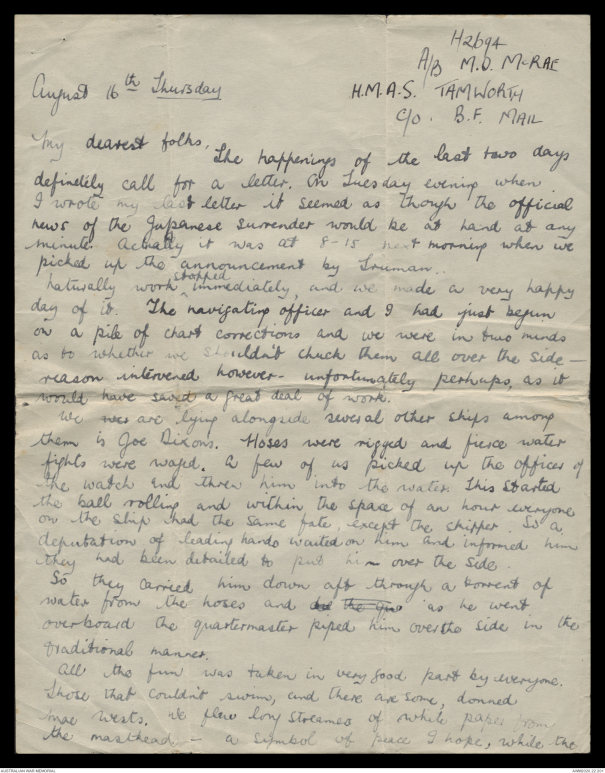 H2694
A/B M.D. McRAE
H.M.A.S. TAMWORTH
C/O. B.F. MAIL
August 16th Thursday
My dearest folks,
The happenings of the last two days
definitely call for a letter. On Tuesday evening when
I wrote my last letter it seemed as though the official
news of the Japanese surrender would be at hand at any
minute. Actually it was at 8-15 next morning when we
picked up the announcement by Truman..
Naturally work stopped immediately, and we made a very happy
day of it. The navigating officer and I had just begun
on a pile of chart corrections and we were in two minds
as to whether we shouldn't chuck them all over the side -
reason intervened however - unfortunately perhaps, as it
would have saved a great deal of work.
We wer are lying alongside several other ships among
them is Joe Dixons. Hoses were rigged and fierce water
fights were waged. A few of us picked up the officer of
the watch and threw him into the water. This started
the ball rolling and within the space of an hour everyone
on the ship had the same fate, except the skipper. So a
deputation of leading hands waited on him and informed him
they had been detailed to put him over the side.
So they carried him down aft through a torrent of
water from the hoses and as he went
overboard the quartermaster piped him over the side in the
traditional manner.
All the fun was taken in very good part by everyone.
Those that couldn't swim, and there are some, donned
mae wests. We flew long streamers of white paper from
the masthead. - a symbol of peace I hope, while the
AUSTRALIAN WAR MEMORIAL